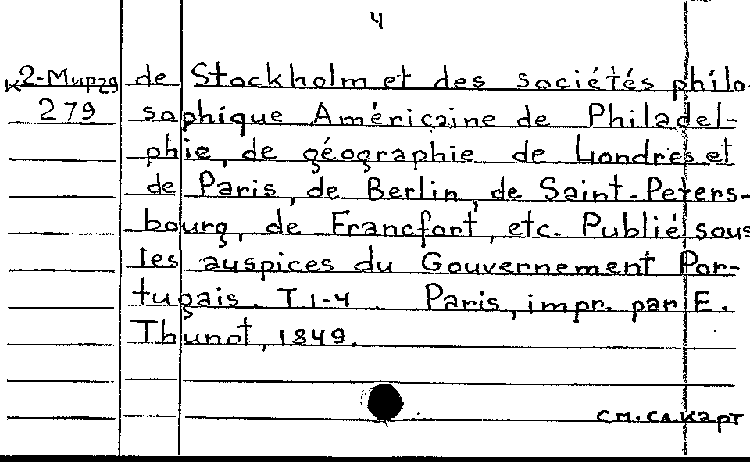 4
к2-Мирзя de Stockholm et des sociétés philo-
279 sophique Américaine de Philadel-
phie, de géographie de Londres et
de Paris, de Berlin, de Saint-Peters-
bourg, de Francfort, etc. Publié sous
les auspices du Gouvernement Por-
tugais. T.1-4. Paris, impr. par E.
Thunot, 1849.
см. сл. карт